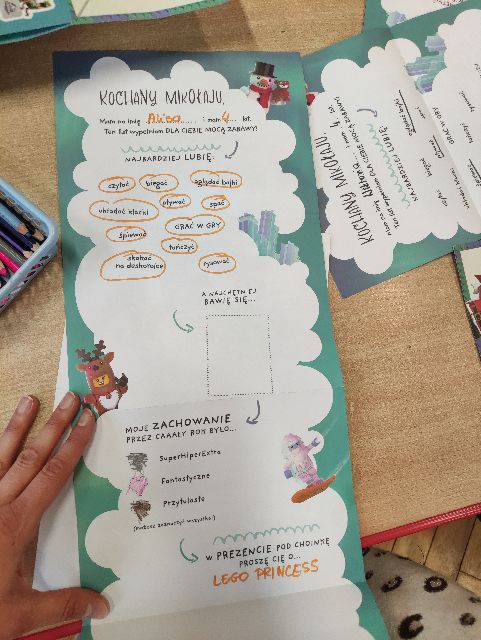 KOCHANY MIKOŁAJU,
Mam na imię Alisa...... i mam 4... lat.
Ten list wypełniam DLA CIEBIE MOCĄ ZABAWY!
NAJBARDZIEJ LUBIĘ:
czytać biegać oglądać bajki
układać klocki pływać spać
śpiewać GRAĆ W GRY
tańczyć
skakać
na deskorolce rysować
A NAJCHĘTNIEJ
BAWIĘ SIĘ...
MOJE ZACHOWANIE
PRZEZ CAAAŁY ROK BYŁO...
SuperHiperExtra
Fantastyczne
Przytulaste
(możesz zaznaczyć wszystko!)
W PREZENCIE POD CHOINKĘ
PROSZĘ CIĘ O...
LEGO PRINCESS
KOCHANY MIKOŁAJU,
NAJBARDZIEJ LUBIĘ: